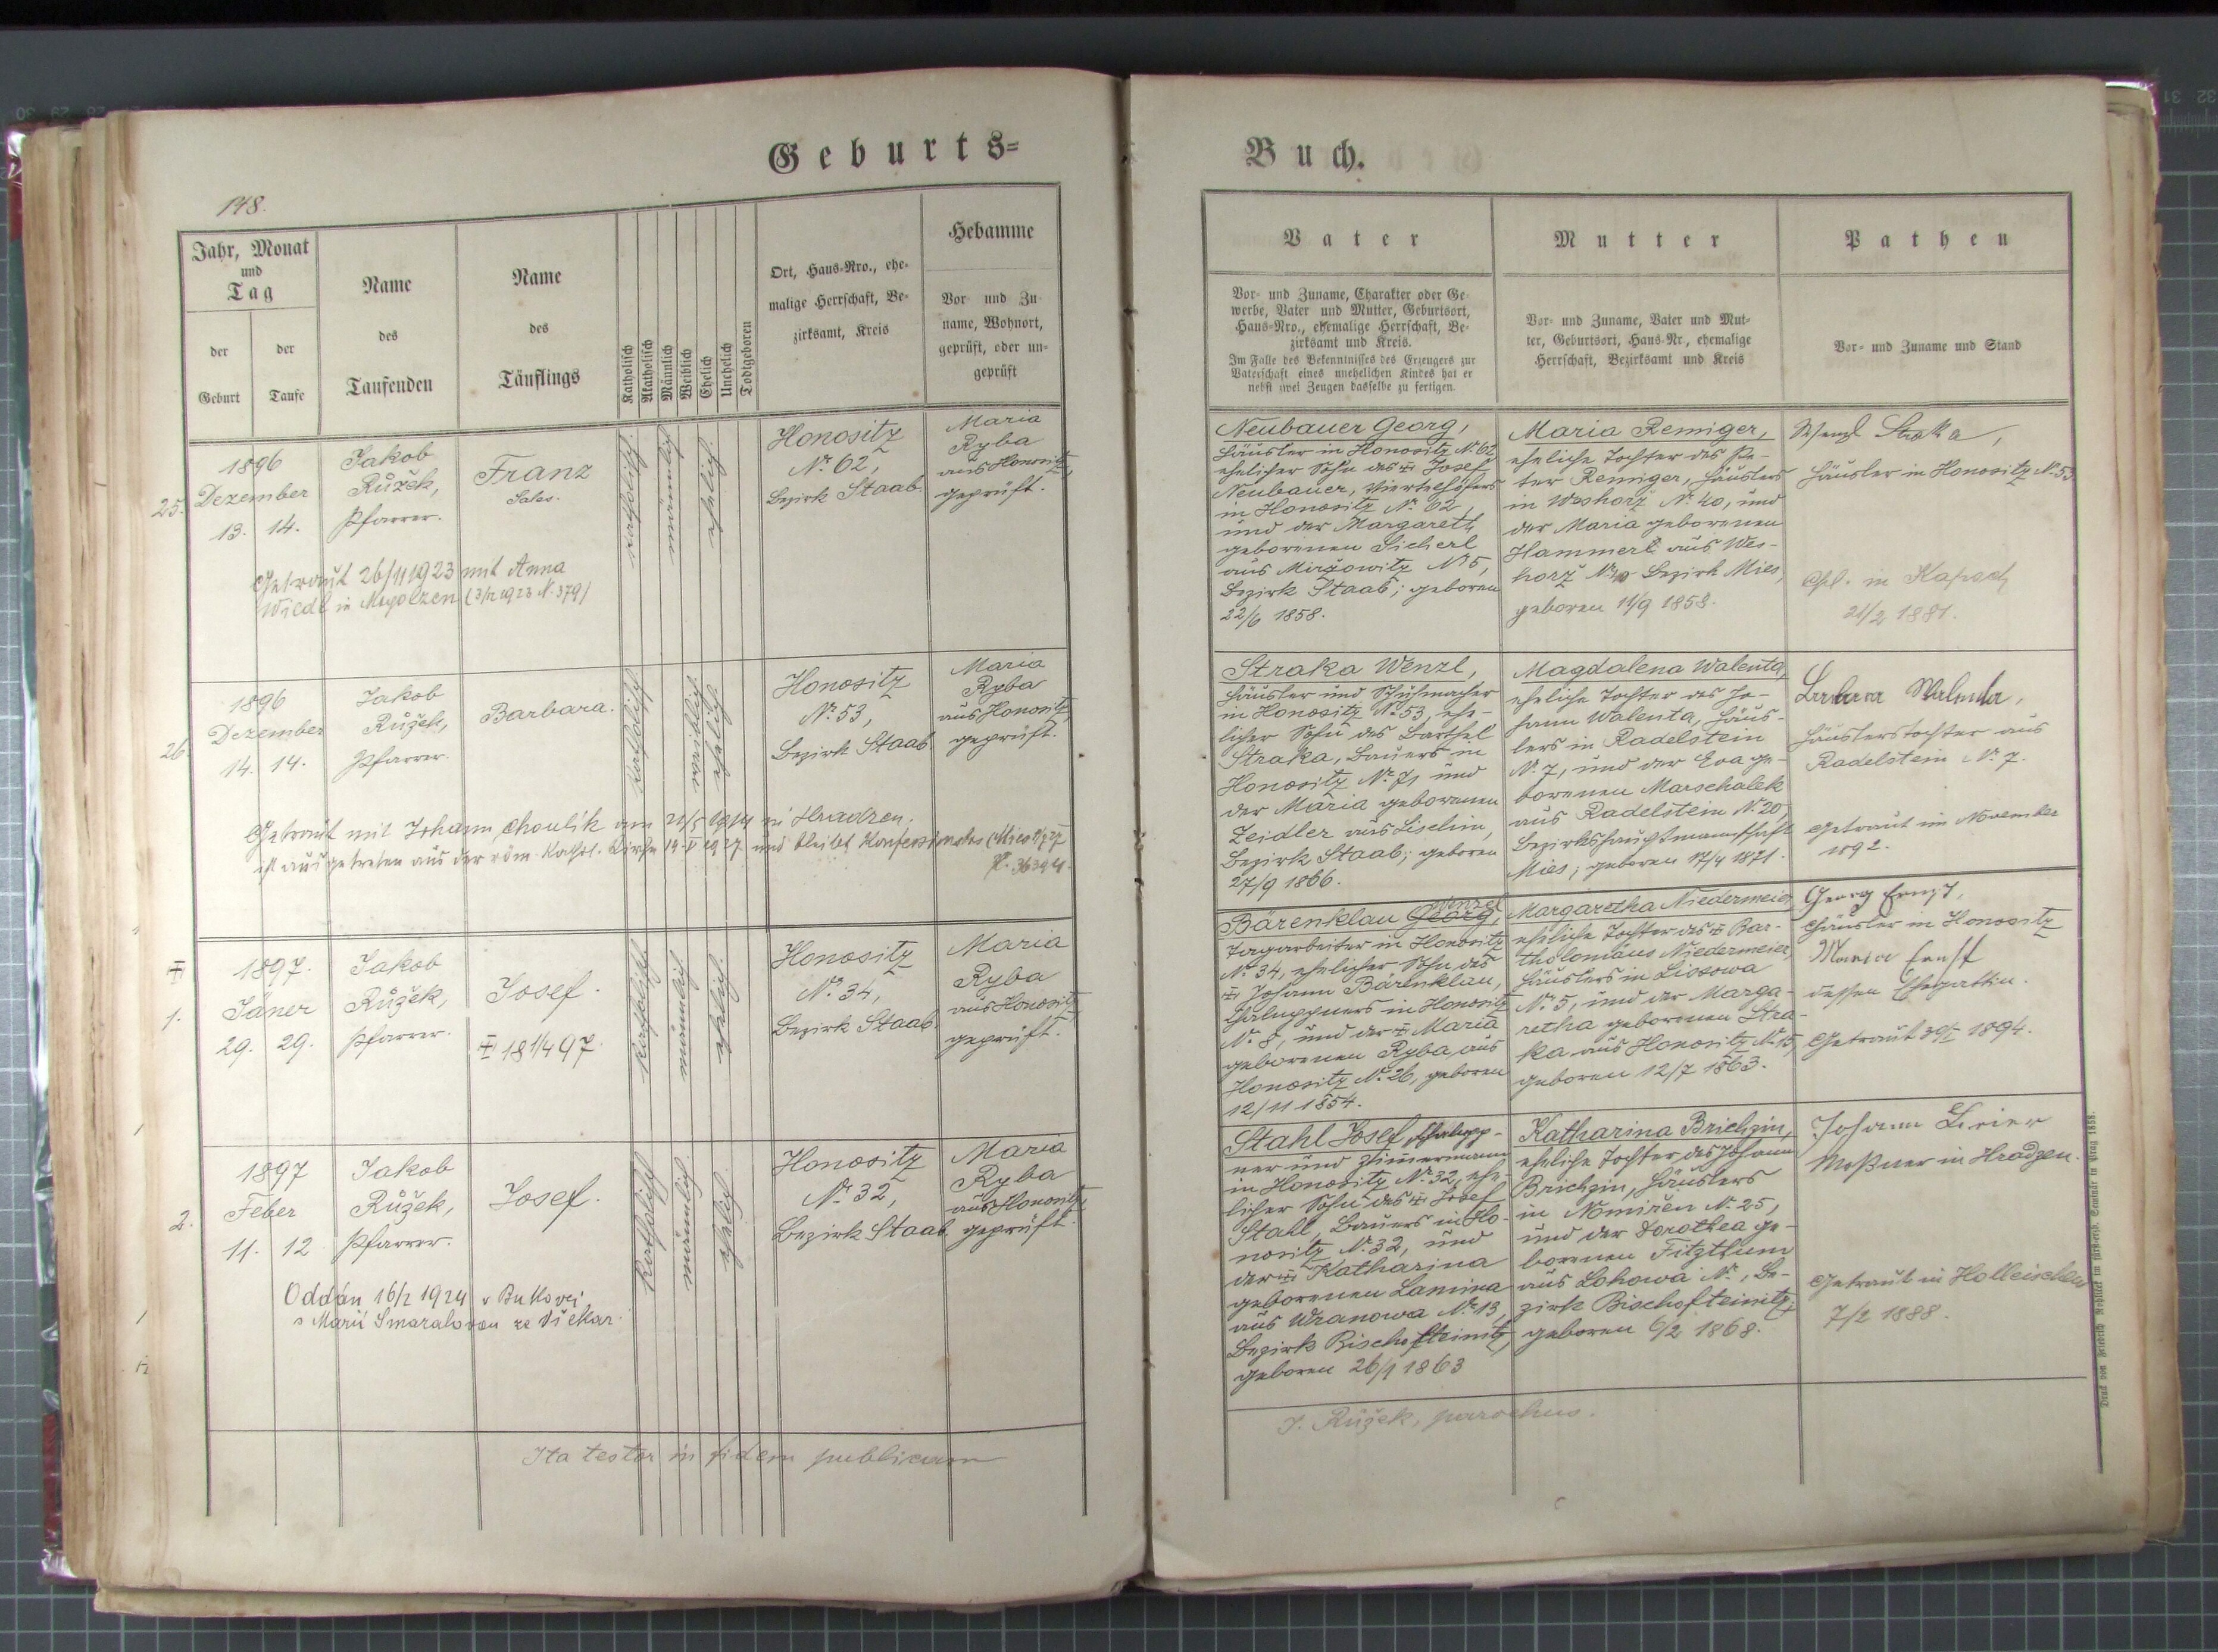 Geburts=
Buch.
148.
Jahr, Monat
und
Tag
der
Geburt
der
Taufe
Name
des
Taufenden
Name
des
Täuflings
Katholisch
Akatholisch
Männlich
Weiblich
Ehelich
Unehelich
Todtgeboren
Ort, Haus-Nro., ehe-
malige Herrschaft, Be-
zirksamt, Kreis
Hebamme
Vor- und Zu-
name, Wohnort,
geprüft, oder un-
geprüft
Vater
Vor- und Zuname, Charakter oder Ge-
werbe, Vater und Mutter, Geburtsort,
Haus-Nro., ehemalige Herrschaft, Be-
zirksamt und Kreis.
Im Falle des Bekenntnisses des Erzeugers zur
Vaterschaft eines unehelichen Kindes hat er
nebst zwei Zeugen dasselbe zu fertigen.
Mutter
Vor- und Zuname, Vater und Mut-
ter, Geburtsort, Haus-Nr., ehemalige
Herrschaft, Bezirksamt und Kreis
Pathen
Vor- und Zuname und Stand
25.
1896
Dezember
13. 14.
Jakob
Růžek,
Pfarrer.
Franz
Sales.
katholisch
männlich
ehelich
Honositz
No. 62,
Bezirk Staab.
Maria
Ryba
aus Honositz,
geprüft.
Getraut 26/11 1923 mit Anna
Wiedl in (3/12 1923 N. 379)
Neubauer Georg,
Häusler in Honositz No. 62,
ehelicher Sohn des Josef
Neubauer, Viertelhöfers
in Honositz No. 62
und der Margareth
geborenen Sicherl
aus Mirschowitz No 5,
Bezirk Staab; geboren
22/6 1858.
Maria Remiger,
eheliche Tochter des Pe-
ter Remiger, Häuslers
in Weshorz No. 40, und
der Maria geborenen
Hammerl aus Wes-
horž Bezirk Mies,
geboren 11/9 1858.
Wenzl Straka,
Häusler in Honositz No. 53
Cpl. in Kapsch
21/2 1881.
26.
1896
Dezember
14. 14.
Jakob
Růžek,
Pfarrer.
Barbara.
katholisch
weiblich
ehelich
Honositz
No. 53,
Bezirk Staab
Maria
Ryba
aus Honositz,
geprüft.
Getraut mit Johann Choulik am 21/5 1914 in Hradzen.
ist ausgetreten aus der röm. kathol. Kirche 14. 1927 und bleibt Konfessionslos
Straka Wenzl,
Häusler und Schuhmacher
in Honositz No. 53, ehe-
licher Sohn des Barthel
Straka, Bauers in
Honositz No. 7, und
der Maria geborenen
Zeidler aus Lischin,
Bezirk Staab; geboren
27/9 1866.
Magdalena Walenta,
eheliche Tochter des Jo-
hann Walenta, Häus-
lers in Radelstein
No. 7, und der Eva ge-
borenen Marschalek
aus Radelstein No. 20,
Bezirkshauptmannschaft
Mies; geboren 17/4 1871.
Barbara Walenta,
Häuslerstochter aus
Radelstein No. 7.
Getraut im November
1892.
1.
1897.
Jäner
29. 29.
Jakob
Růžek,
Pfarrer.
Josef.
18 1/4 97.
katholisch
männlich
ehelich
Honositz
No. 34,
Bezirk Staab
Maria
Ryba
aus Honositz
geprüft.
Wenzel
Bärenklau Georg,
Tagarbeiter in Honositz
No. 34, ehelicher Sohn des
Johann Bärenklau,
Chaluppners in Honositz
No. 8, und der Maria
geborenen Ryba, aus
Honositz No. 26, geboren
12/11 1854.
Margaretha Niedermeier
eheliche Tochter des Bar-
tholomäus Niedermeier,
Häuslers in Lissowa
No. 5, und der Marga-
retha geborenen Stra-
ka aus Honositz No. 15,
geboren 12/7 1863.
Georg Ernst,
Häusler in Honositz
Maria Ernst
dessen Ehegattin.
Getraut 30/1 1894.
2.
1897
Feber
11. 12
Jakob
Růžek,
Pfarrer.
Josef.
katholisch
männlich
ehelich
Honositz
No. 32,
Bezirk Staab
Maria
Ryba
aus Honositz,
geprüft.
Oddán 16/2 1924 v Bukovci
s Marií Smaralovou ze
Stahl Josef, Chalupp-
ner und Zimmermann
in Honositz No. 32, ehe-
licher Sohn des Josef
Stahl, Bauers in Ho-
nositz No. 32, und
der Katharina
geborenen Lamina
aus Wranowa No. 13,
Bezirk Bischofteinitz,
geboren 26/1 1863
Katharina Brichzin,
eheliche Tochter des Johann
Brichzin, Häuslers
in Nomiřen No. 25,
und der Dorothea ge-
borenen Fitzthum
aus Lohowa No. , Be-
zirk Bischofteinitz;
geboren 6/2 1868.
Johann Beier
Meßner in Hradzen.
Getraut in Holleischen
7/2 1888.
Ita testor in fidem publicam
J. Růžek, parochus.
Druck von Friedrich Rohliček im fürst-erzb. Seminär in Prag 1858.